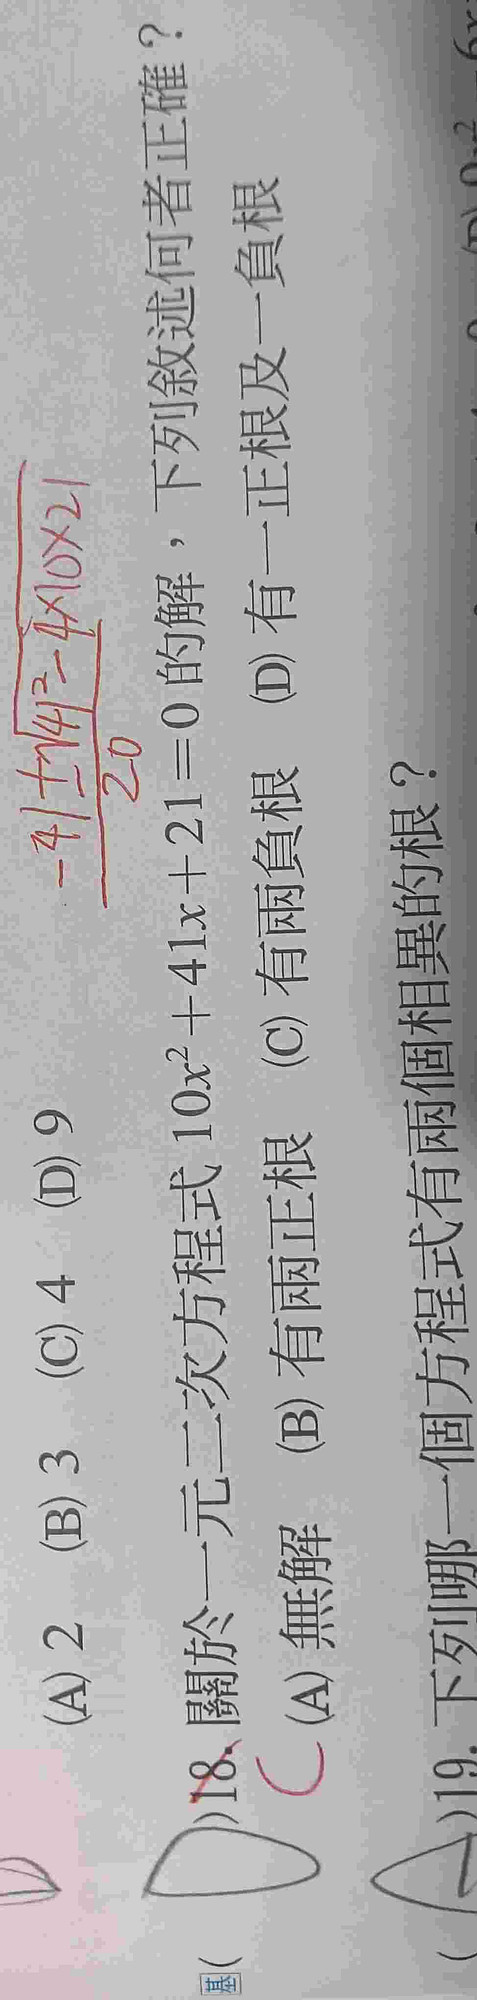 D
(A) 2 (B) 3 (C) 4 (D) 9
-41±√41²-4×10×21
20
基 ( D )18. 關於一元二次方程式 10x²+41x+21=0 的解，下列敘述何者正確？
C (A) 無解 (B) 有兩正根 (C) 有兩負根 (D) 有一正根及一負根
( A )19. 下列哪一個方程式有兩個相異的根？